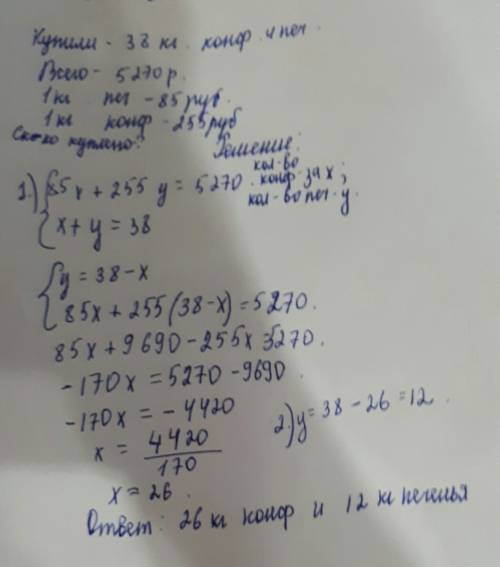 Купили - 38 кг. конф. и печ.
Всего - 5270 р.
1 кг печ - 85 руб.
1 кг конф - 255 руб
Ск-ко куплено?
Решение:
кол-во
конф. за x;
кол-во печ - y.
1.) { 85x + 255y = 5270.
{ x + y = 38
{ y = 38 - x
{ 85x + 255(38-x) = 5270.
85x + 9690 - 255x = 5270.
-170x = 5270 - 9690.
-170x = -4420
x = 4420/170
x = 26.
2.) y = 38 - 26 = 12.
Ответ: 26 кг конф и 12 кг печенья